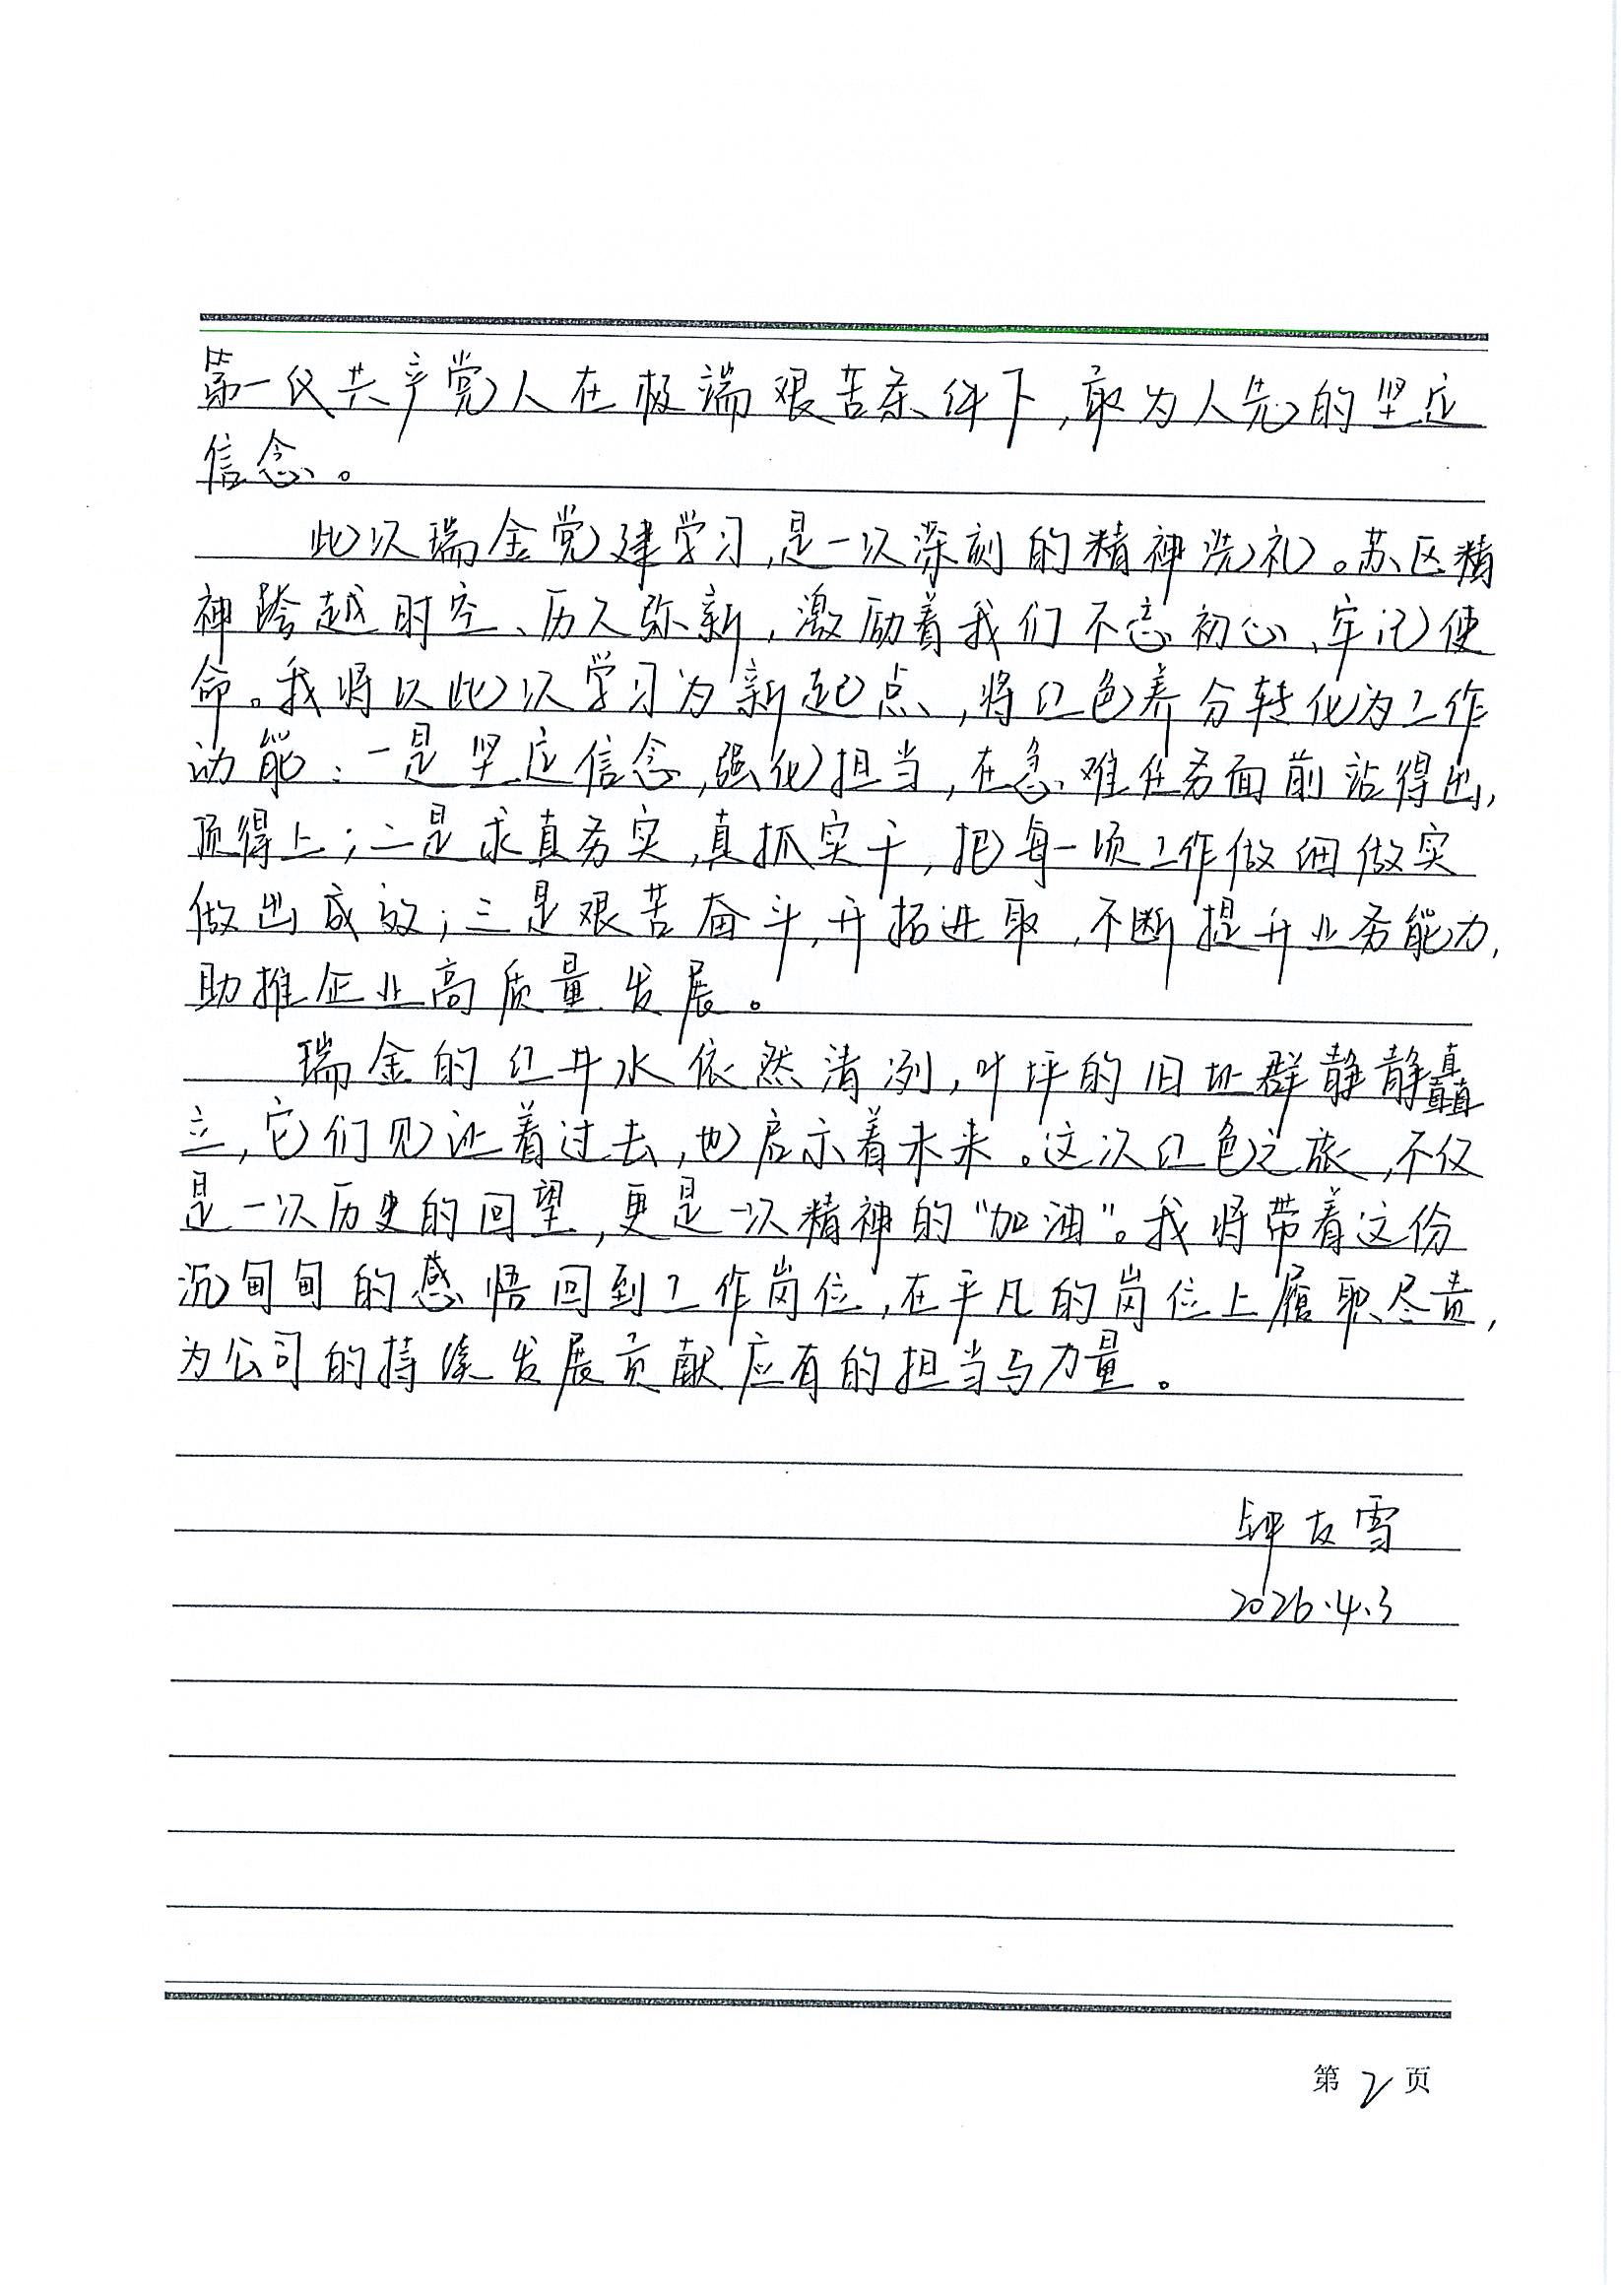 第一代共产党人在极端艰苦条件下,敢为人先的坚定
信念。
此次瑞金党建学习,是一次深刻的精神洗礼。苏区精
神跨越时空、历久弥新,激励着我们不忘初心、牢记使
命。我将以此次学习为新起点,将红色养分转化为工作
动能:一是坚定信念,强化担当,在急难任务面前站得出,
顶得上;二是求真务实,真抓实干,把每一项工作做细做实
做出成效;三是艰苦奋斗,开拓进取,不断提升业务能力,
助推企业高质量发展。
瑞金的红井水依然清冽,叶坪的旧址群静静矗
立,它们见证着过去,也启示着未来。这次红色之旅,不仅
是一次历史的回望,更是一次精神的“加油”。我将带着这份
沉甸甸的感悟回到工作岗位,在平凡的岗位上履职尽责,
为公司的持续发展贡献应有的担当与力量。
钟友雪
2026.4.3
第2页